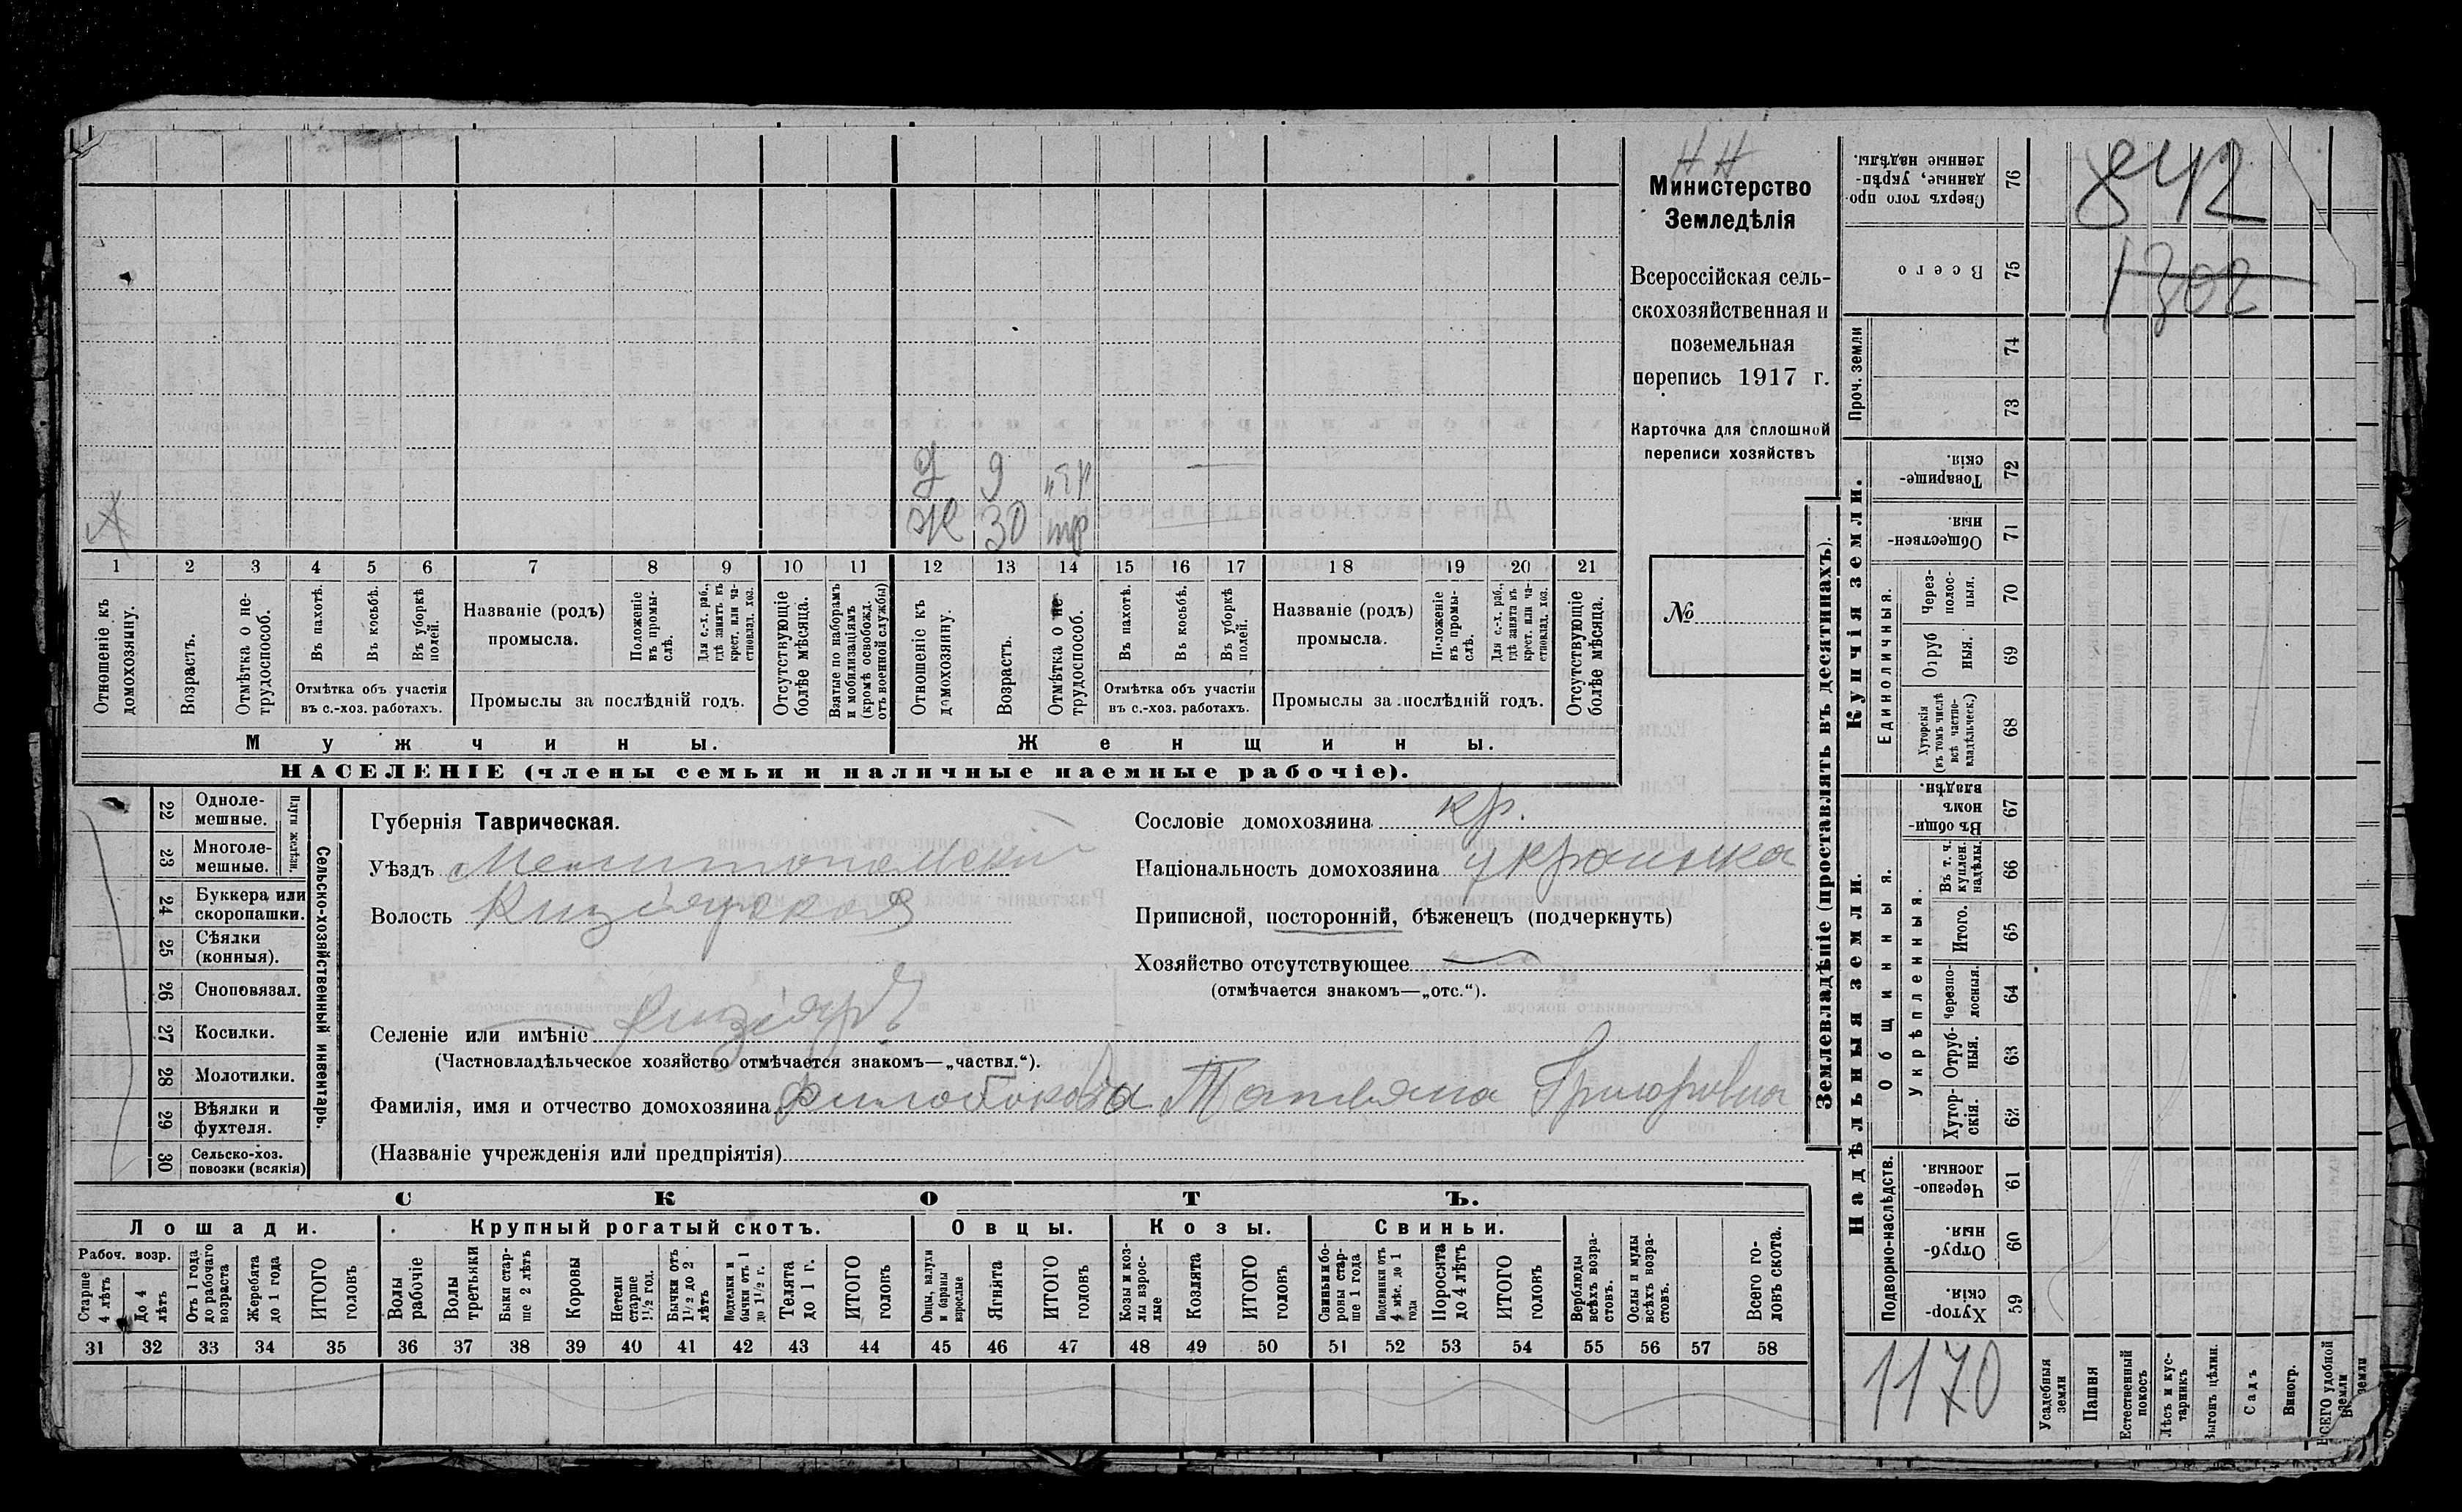 НН
Министерство
Земледѣлія
Всероссійская сель-
скохозяйственная и
поземельная
перепись 1917 г.
Карточка для сплошной
переписи хозяйствъ
№
842
1302
9
Ж 30 тр
1 2 3 4 5 6 7 8 9 10 11 12 13 14 15 16 17 18 19 20 21
Отношеніе къ домохозяину.
Возрастъ.
Отмѣтка о не-трудоспособ.
Въ пахотѣ.
Въ косьбѣ.
Въ уборкѣ полей.
Отмѣтка объ участіи
въ с.-хоз. работахъ.
Названіе (родъ)
промысла.
Положеніе въ промы-слѣ.
Для с.-х. раб., гдѣ занятъ въ крест. или ча-стновлад. хоз.
Промыслы за послѣдній годъ.
Отсутствующіе болѣе мѣсяца.
Взятые по наборамъ и мобилизаціямъ (кромѣ освобожд. отъ военной службы)
Отношеніе къ домохозяину.
Возрастъ.
Отмѣтка о не трудоспособ.
Въ пахотѣ.
Въ косьбѣ.
Въ уборкѣ полей.
Отмѣтка объ участіи
въ с.-хоз. работахъ.
Названіе (родъ)
промысла.
Положеніе въ промы-слѣ.
Для с.-х. раб., гдѣ занята въ крест. или ча-стновлад. хоз.
Промыслы за послѣдній годъ.
Отсутствующіе болѣе мѣсяца.
Мужчины.
Женщины.
НАСЕЛЕНІЕ (члены семьи и наличные наемные рабочіе).
Сельско-хозяйственный инвентарь.
Плуги желѣзн.
22 Одноле-мешные.
23 Многоле-мешные.
24 Буккера или скоропашки.
25 Сѣялки (конныя).
26 Сноповязал.
27 Косилки.
28 Молотилки.
29 Вѣялки и фухтеля.
30 Сельско-хоз. повозки (всякія)
Губернія Таврическая.
Уѣздъ Мелитопольскій
Волость Кизіярская
Селеніе или имѣніе Кизіяръ
(Частновладѣльческое хозяйство отмѣчается знакомъ—„частвл.“).
Фамилія, имя и отчество домохозяина Филобокова Татьяна Григоровна
(Названіе учрежденія или предпріятія)
Сословіе домохозяина кр.
Національность домохозяина украинка
Приписной, посторонній, бѣженецъ (подчеркнуть)
Хозяйство отсутствующее —
(отмѣчается знакомъ—„отс.“).
СКОТЪ.
Лошади.
Рабоч. возр.
Старше 4 лѣтъ
До 4 лѣтъ
Отъ 1 года до рабочаго возраста
Жеребята до 1 года
ИТОГО головъ
Крупный рогатый скотъ.
Волы рабочіе
Волы третьяки
Быки стар-ше 2 лѣтъ
Коровы
Нетели старше 1 1/2 год.
Бычки отъ 1 1/2 до 2 лѣтъ
Подтелки и бычки отъ 1 до 1 1/2 г.
Телята до 1 г.
ИТОГО головъ
Овцы.
Овцы, валухи и бараны взрослые
Ягнята
ИТОГО головъ
Козы.
Козы и коз-лы взрос-лые
Козлята
ИТОГО головъ
Свиньи.
Свиньи и бо-ровы стар-ше 1 года
Подсвинки отъ 4 мѣс. до 1 года
Поросята до 4 лѣтъ
ИТОГО головъ
Верблюды всѣхъ возра-стовъ.
Ослы и мулы всѣхъ возра-стовъ.
Всего го-ловъ скота.
31 32 33 34 35 36 37 38 39 40 41 42 43 44 45 46 47 48 49 50 51 52 53 54 55 56 57 58
Землевладѣніе (проставлять въ десятинахъ).
Сверхъ того про-данные, укрѣп-ленные надѣлы. 76
Всего 75
Проч. земли
74
73
Купчія земли.
Товарище-скія. 72
Обществен-ныя. 71
Единоличныя.
Через-полос-ныя. 70
Отруб ныя. 69
Хуторскія (въ томъ числѣ всѣ частно-владѣльческ.) 68
Надѣльныя земли.
Общинныя.
Въ общин номъ владѣн. 67
Укрѣпленныя.
Въ т. ч. куплен. надѣлы. 66
Итого. 65
Черезпо-лосныя. 64
Отруб-ныя. 63
Хутор-скія. 62
Подворно-наслѣдств.
Черезпо-лосныя. 61
Отруб-ныя. 60
Хутор-скія. 59
1170
Усадебныя земли
Пашня
Естественный покосъ
Лѣсъ и кус-тарникъ
Выгонъ цѣлин.
Садъ
Виногр.
ВСЕГО удобной земли